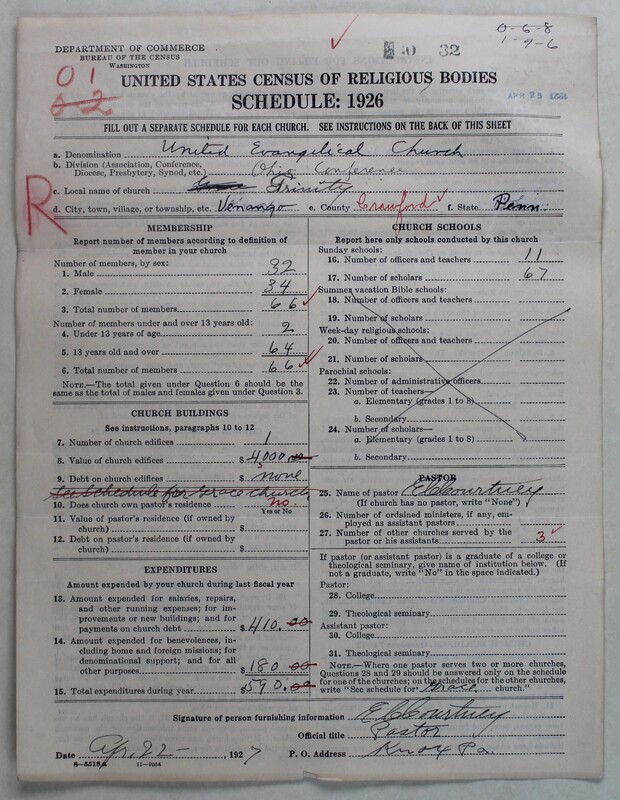 0-6-8
1-9-6
30 32
DEPARTMENT OF COMMERCE
BUREAU OF THE CENSUS
WASHINGTON
01
0-2
APR 23
UNITED STATES CENSUS OF RELIGIOUS BODIES
SCHEDULE: 1926
FILL OUT A SEPARATE SCHEDULE FOR EACH CHURCH. SEE INSTRUCTIONS ON THE BACK OF THIS SHEET
a. Denomination United Evangelical Church
b. Division (Association, Conference, Diocese, Presbytery, Synod, etc.) Ohio Conference
c. Local name of church Trinity
R
d. City, town, village, or township, etc. Venango e. County Crawford f. State Penn.
MEMBERSHIP
Report number of members according to definition of member in your church
Number of members, by sex:
1. Male 32
2. Female 34
3. Total number of members 66
Number of members under and over 13 years old:
4. Under 13 years of age 2
5. 13 years old and over 64
6. Total number of members 66
NOTE.—The total given under Question 6 should be the same as the total of males and females given under Question 3.
CHURCH BUILDINGS
See instructions, paragraphs 10 to 12
7. Number of church edifices 1
8. Value of church edifices $4,000.00
9. Debt on church edifices $ none
See Schedule for Grace church
10. Does church own pastor's residence? no.
Yes or No
11. Value of pastor's residence (if owned by church) $
12. Debt on pastor's residence (if owned by church) $
EXPENDITURES
Amount expended by your church during last fiscal year
13. Amount expended for salaries, repairs, and other running expenses; for improvements or new buildings; and for payments on church debt $410.00
14. Amount expended for benevolences, including home and foreign missions; for denominational support; and for all other purposes $180 00
15. Total expenditures during year $590.00
CHURCH SCHOOLS
Report here only schools conducted by this church
Sunday schools:
16. Number of officers and teachers 11
17. Number of scholars 67
Summer vacation Bible schools:
18. Number of officers and teachers
19. Number of scholars
Week-day religious schools:
20. Number of officers and teachers
21. Number of scholars
Parochial schools:
22. Number of administrative officers
23. Number of teachers—
a. Elementary (grades 1 to 8)
b. Secondary
24. Number of scholars—
a. Elementary (grades 1 to 8)
b. Secondary
PASTOR
25. Name of pastor E C Courtney
(If church has no pastor, write "None")
26. Number of ordained ministers, if any, employed as assistant pastors
27. Number of other churches served by the pastor or his assistants 3
If pastor (or assistant pastor) is a graduate of a college or theological seminary, give name of institution below. (If not a graduate, write "No" in the space indicated.)
Pastor:
28. College
29. Theological seminary
Assistant pastor:
30. College
31. Theological seminary
NOTE.—Where one pastor serves two or more churches, Questions 28 and 29 should be answered only on the schedule for one of the churches; on the schedules for the other churches, write "See schedule for Grace church."
Signature of person furnishing information E C Courtney
Official title Pastor
Date Apr. 22 - 1927 P. O. Address Knox Pa.
8-5518a 11-9034